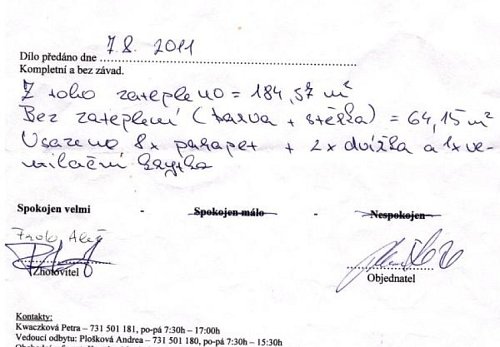 Dílo předáno dne 7.8. 2011
Kompletní a bez závad.
Z toho zatepleno = 184,57 m²
Bez zateplení (barva + stěrka) = 64,15 m²
Usazeno 8x parapet + 2x dvířka a 1x ve-
ntilační krytka
Spokojen velmi - Spokojen málo - Nespokojen
Zhotovitel
Objednatel
Kontakty:
Kwaczková Petra – 731 501 181, po-pá 7:30h – 17:00h
Vedoucí odbytu: Plošková Andrea – 731 501 180, po-pá 7:30h – 15:30h